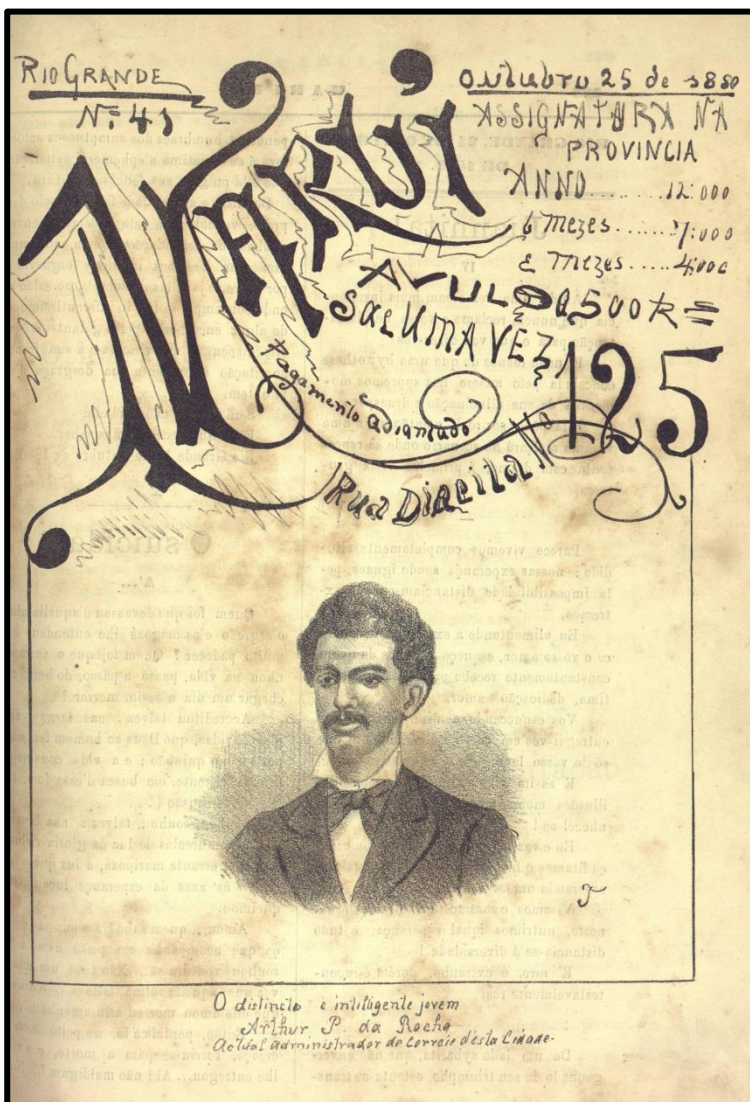 RIO GRANDE
Nº 41
Outubro 25 de 1880
MARUÍ
ASSIGNATURA NA
PROVINCIA
ANNO........12:000
6 Mezes......7:000
Mezes.....4:000
AVULSO a 500 R
SAE UMA VEZ
Pagamento adiantado
Rua Direita Nº 125
O distincto e intilligente jovem
Arthur P. da Rocha
Actual administrador do Correio d'esta Cidade.